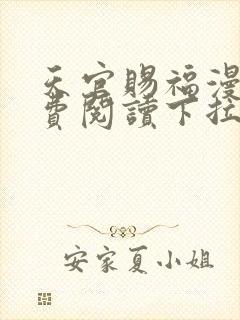 天官賜福漫
費閱讀下拉
安家夏小姐